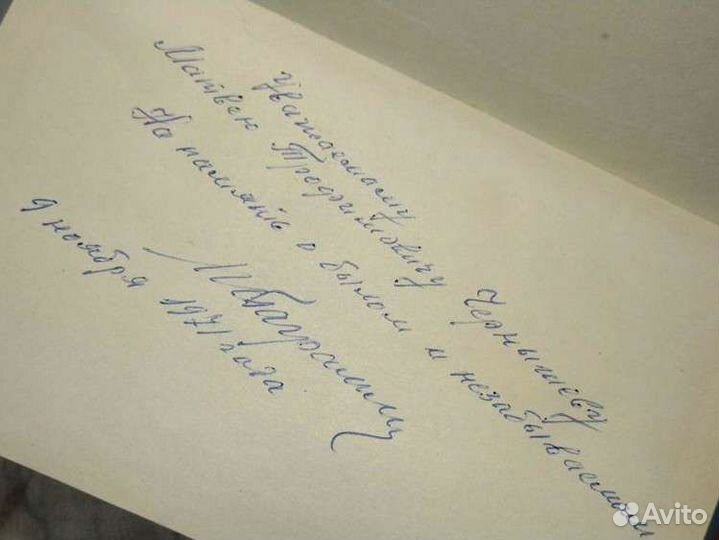 Уважаемому
Матвею Трофимовичу Чернышеву
На память о былом и незабываемом
И Баграмян
9 ноября 1971 года
Avito